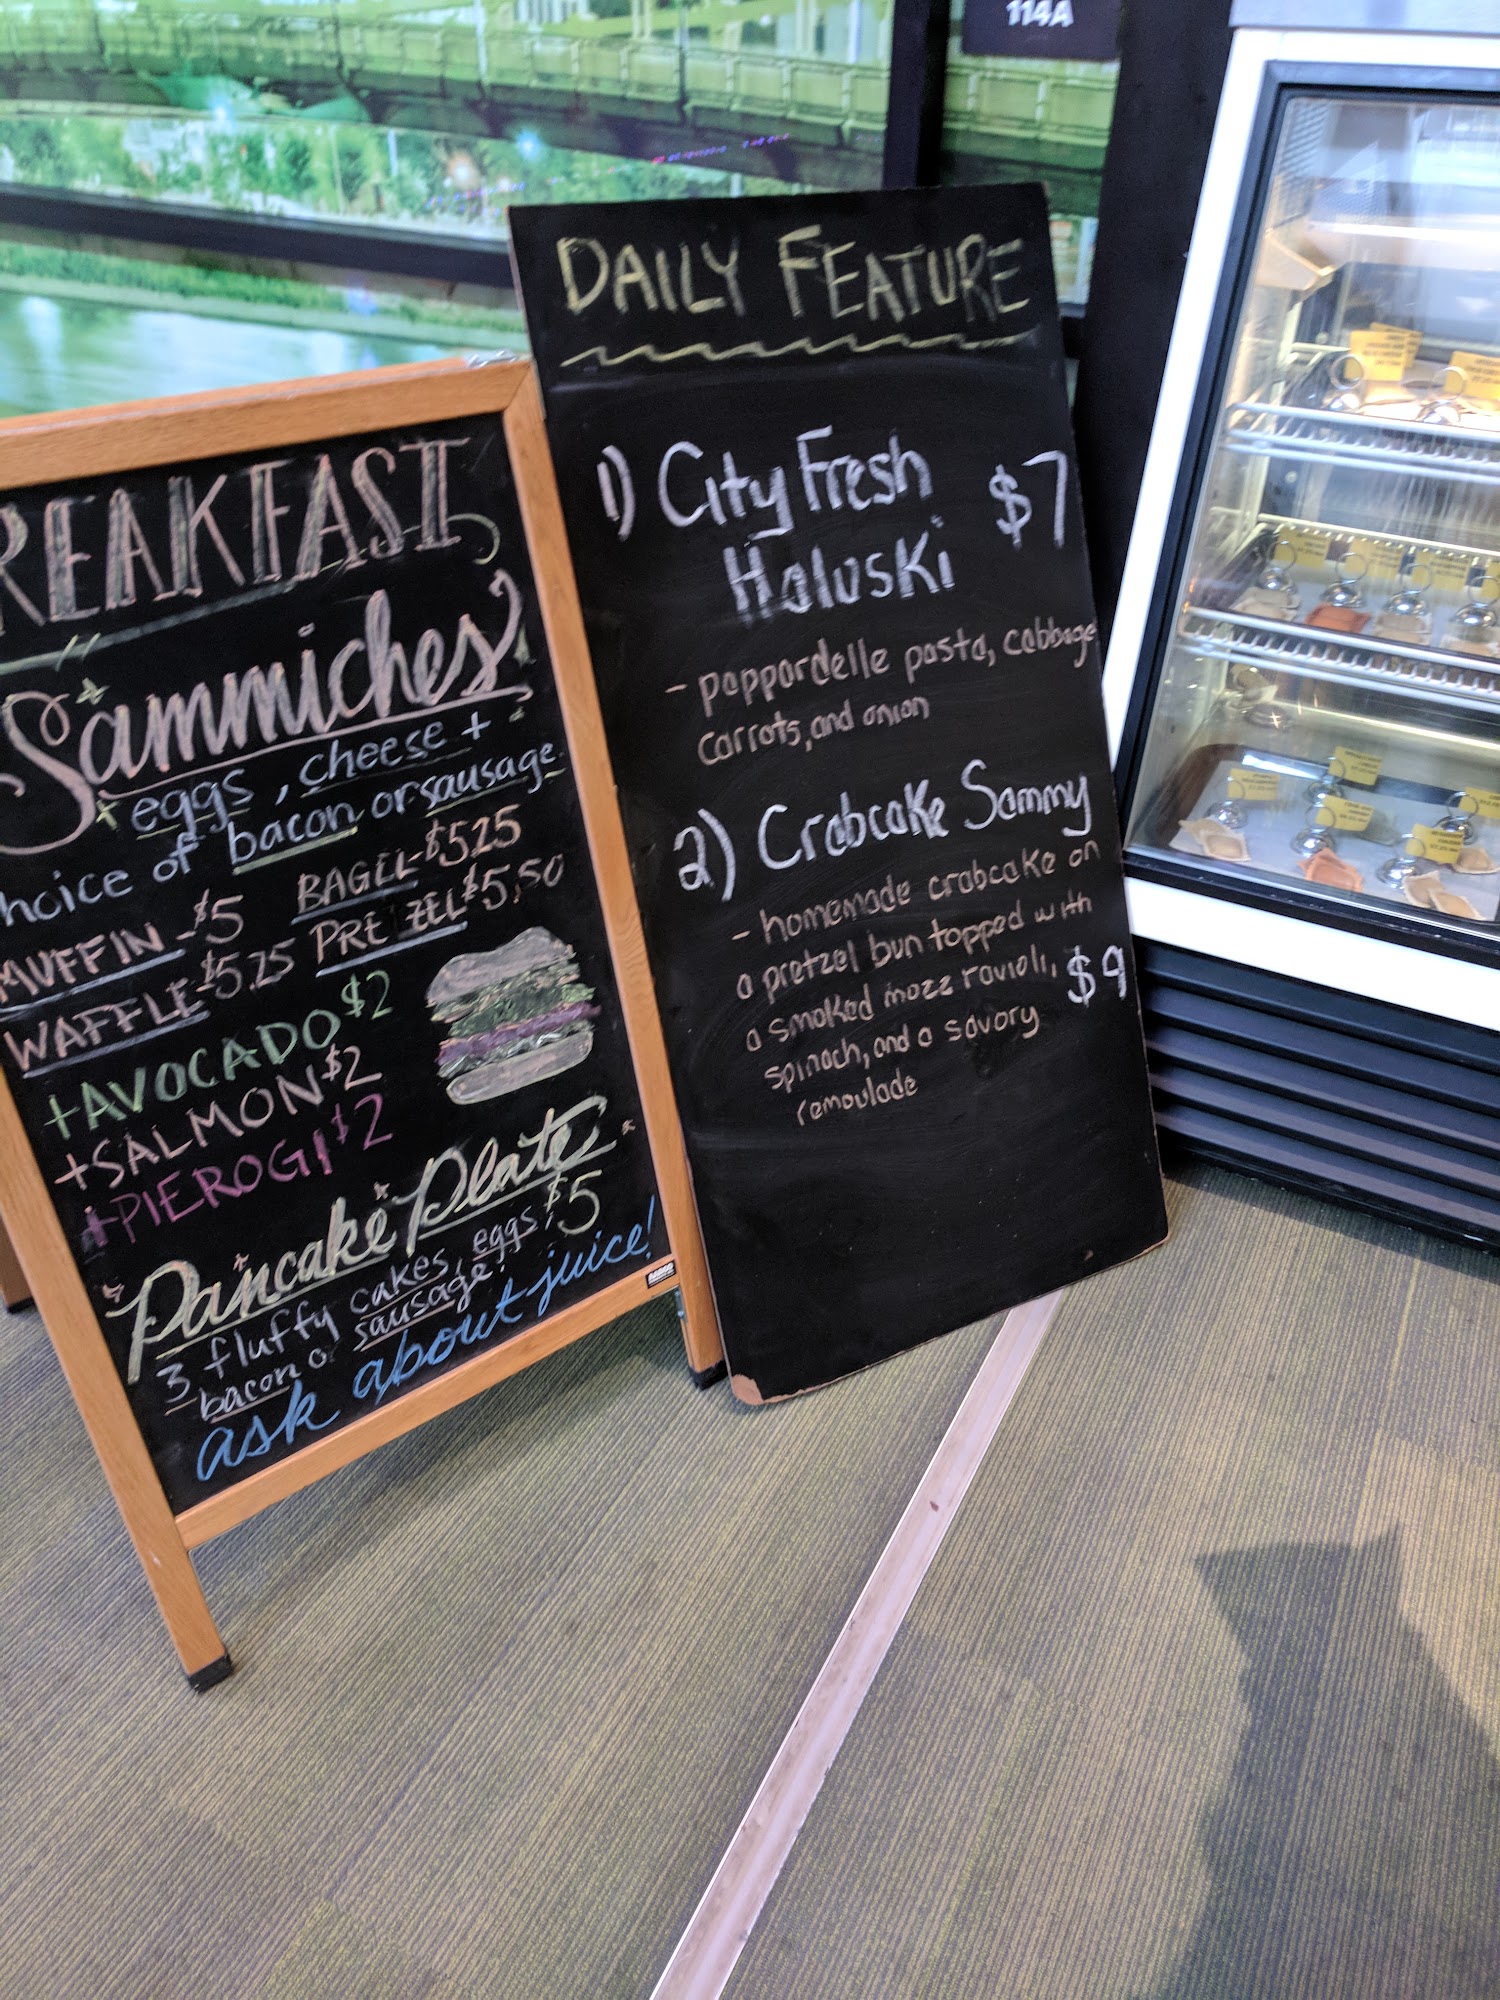 114A
REAKFAST
Sammiches
eggs, cheese +
hoice of bacon or sausage
MUFFIN - $5 BAGEL - $5.25
WAFFLE - $5.25 PRETZEL $5.50
+AVOCADO $2
+SALMON $2
+PIEROGI $2
Pancake Plate
3 fluffy cakes, eggs, $5
bacon o sausage!
ask about juice!
DAILY FEATURE
1) City Fresh $7
Haluski
- pappardelle pasta, cabbage
carrots, and onion
2) Crabcake Sammy
- homemade crabcake on
a pretzel bun topped with
a smoked mozz ravioli, $9
spinach, and a savory
remoulade